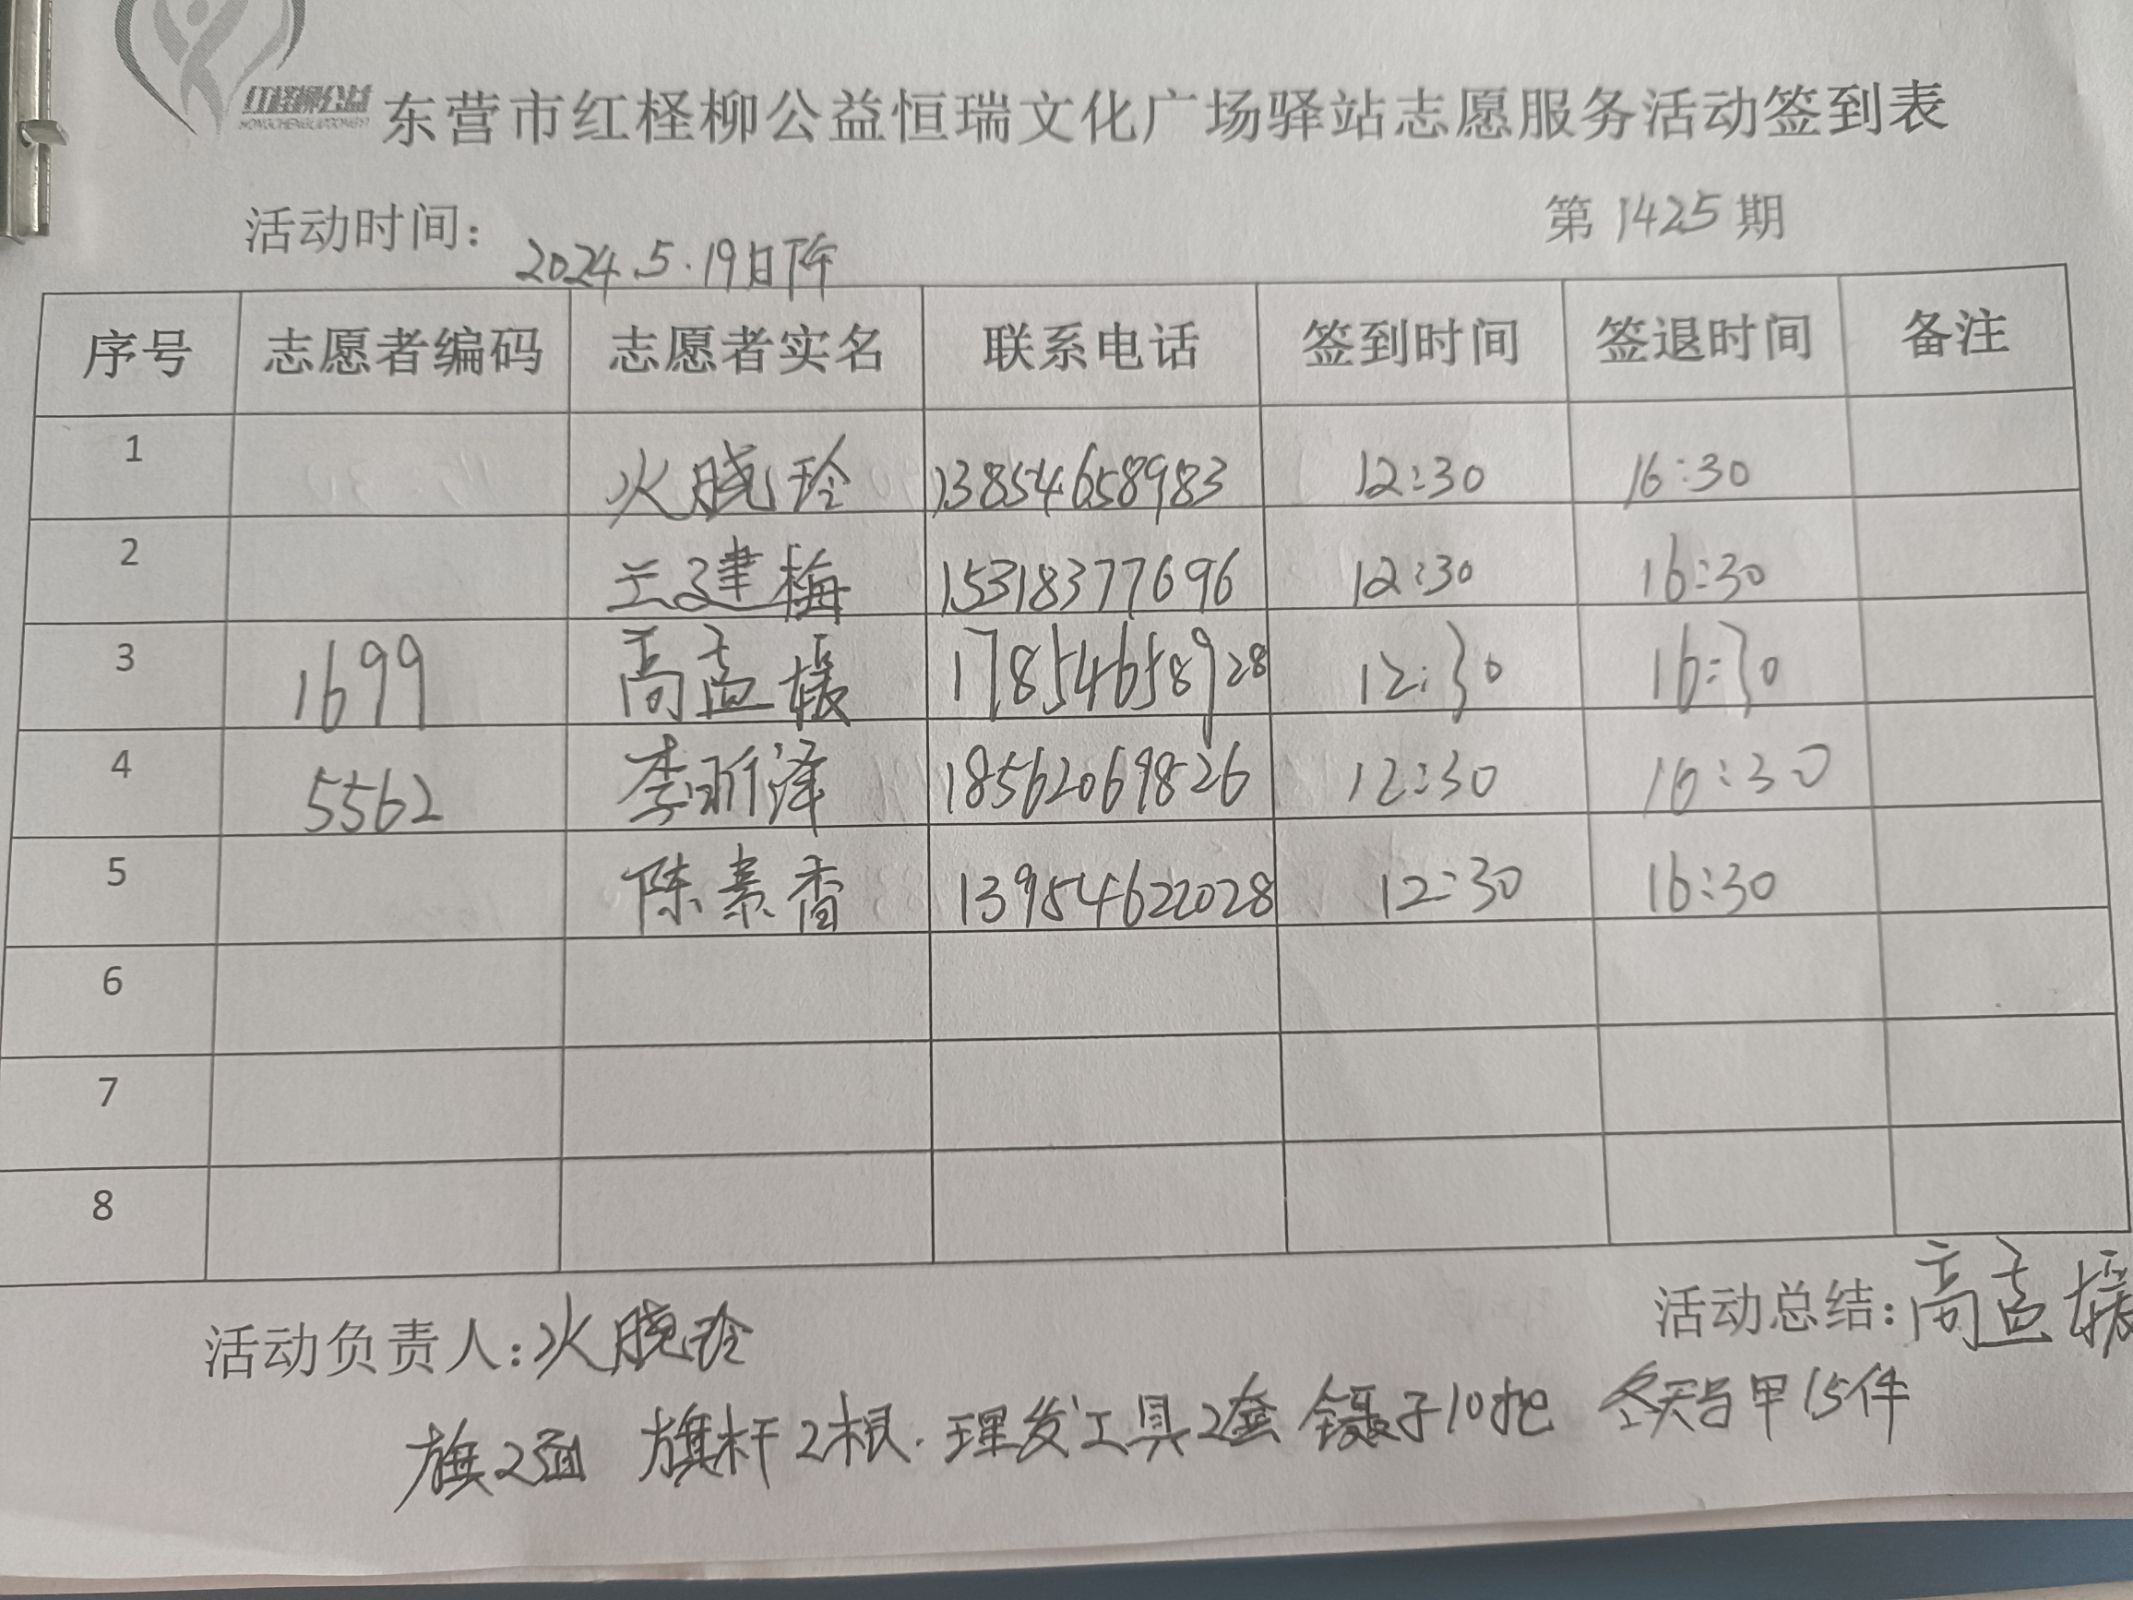 红柽柳公益
东营市红柽柳公益恒瑞文化广场驿站志愿服务活动签到表
活动时间：2024.5.19日下午 第1425期
序号 志愿者编码 志愿者实名 联系电话 签到时间 签退时间 备注
1 火晓玲 13854658983 12:30 16:30
2 兰建梅 15318377696 12:30 16:30
3 1699 高孟媛 17854658928 12:30 16:30
4 5562 李昕泽 18562069826 12:30 16:30
5 陈素香 13954622028 12:30 16:30
6
7
8
活动负责人：火晓玲 活动总结：高孟媛
旗2面 旗杆2根. 理发工具2套 镊子10把 冬天马甲15件